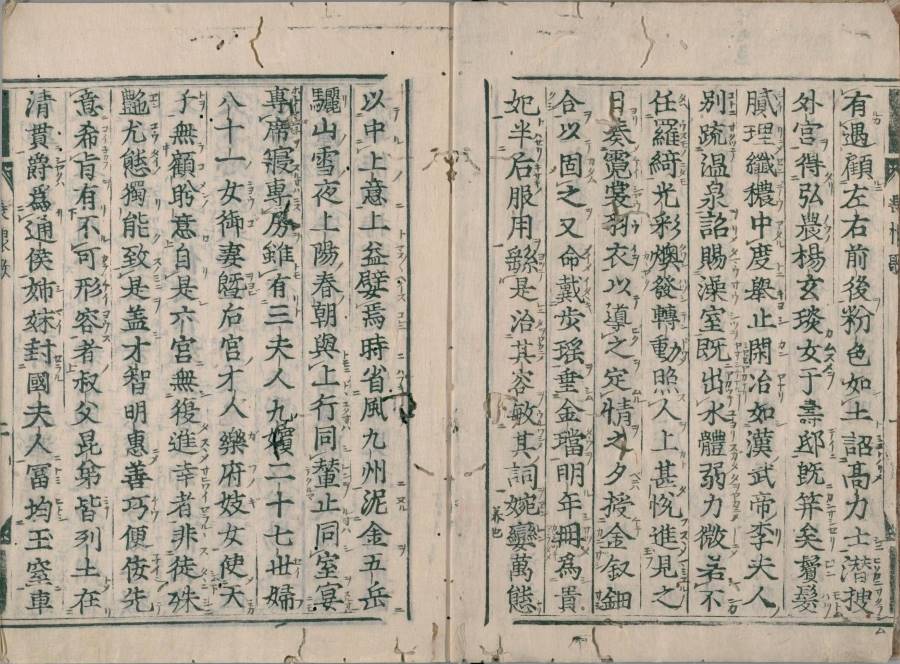 有遇顧左右前後粉色如土詔髙力士潛搜
外宮得弘農楊玄琰女于壽邸既筓矣鬢髮
膩理纖穠中度舉止閑冶如漢武帝李夫人
別疏温泉詔賜澡室既出水體弱力微若不
任羅綺光彩煥發轉動照人上甚悅進見之
日奏霓裳羽衣以導之定情之夕授金釵鈿
合以固之又命戴步瑶垂金璫明年冊爲貴
妃半后服用繇是冶其容敏其詞婉孌萬態
以中上意上益嬖焉時省風九州泥金五岳
驪山雪夜上陽春朝與上行同輦止同室宴
專席寢專房雖有三夫人九嬪二十七世婦
八十一女御妻曁后宮才人樂府妓女使天
子無顧眄意自是六宮無復進幸者非徒殊
艶尤態獨能致是盖才智明惠善巧便佞先
意希㫖有不可形容者叔父昆弟皆列土在
清貫爵爲通侯姉妹封國夫人冨均王室車